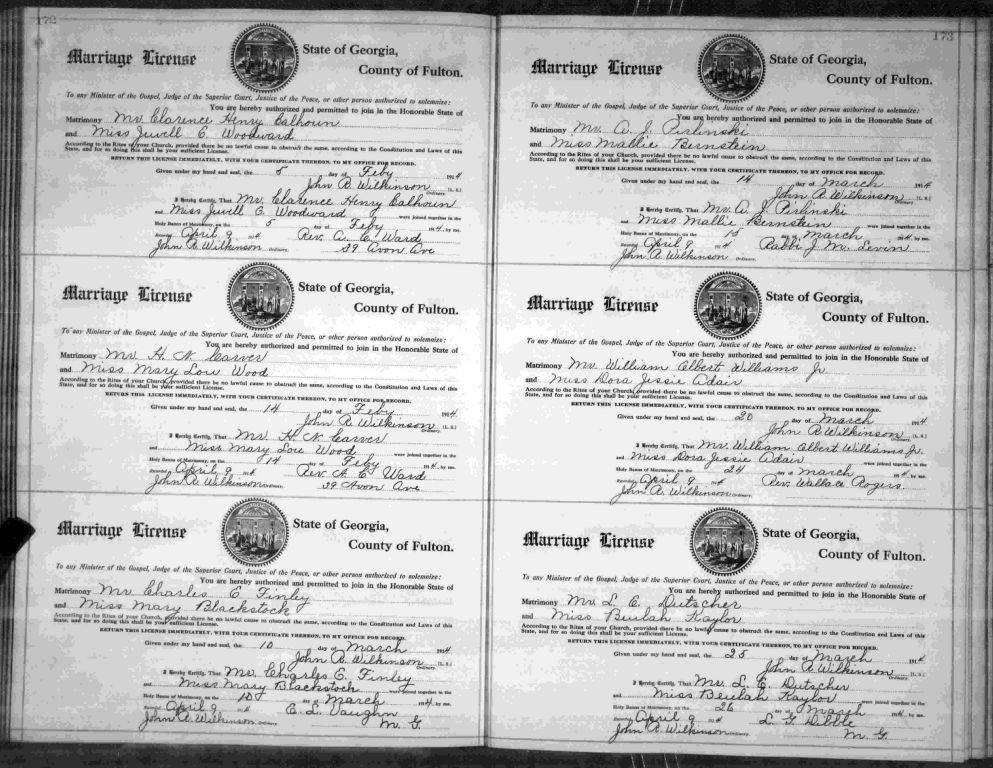 172
Marriage License
State of Georgia,
County of Fulton.
To any Minister of the Gospel, Judge of the Superior Court, Justice of the Peace, or other person authorized to solemnize:
You are hereby authorized and permitted to join in the Honorable State of
Matrimony Mr. Clarence Henry Calhoun
and Miss Jewell E. Woodward
According to the Rites of your Church, provided there be no lawful cause to obstruct the same, according to the Constitution and Laws of this
State, and for so doing this shall be your sufficient License.
RETURN THIS LICENSE IMMEDIATELY, WITH YOUR CERTIFICATE THEREON, TO MY OFFICE FOR RECORD.
Given under my hand and seal, the 5 day of Feby 1914
John R. Wilkinson (L. S.)
Ordinary.
I Hereby Certify, That Mr. Clarence Henry Calhoun
and Miss Jewell E. Woodward were joined together in the
Holy Banns of Matrimony, on the 5 day of Feby 1914, by me.
Recorded April 9 1914 Rev. A. E. Ward
John R. Wilkinson Ordinary. 39 Avon Ave
Marriage License
State of Georgia,
County of Fulton.
To any Minister of the Gospel, Judge of the Superior Court, Justice of the Peace, or other person authorized to solemnize:
You are hereby authorized and permitted to join in the Honorable State of
Matrimony Mr. H. N. Carver
and Miss Mary Lou Wood
According to the Rites of your Church, provided there be no lawful cause to obstruct the same, according to the Constitution and Laws of this
State, and for so doing this shall be your sufficient License.
RETURN THIS LICENSE IMMEDIATELY, WITH YOUR CERTIFICATE THEREON, TO MY OFFICE FOR RECORD.
Given under my hand and seal, the 14 day of Feby 1914
John R. Wilkinson (L. S.)
Ordinary.
I Hereby Certify, That Mr. H. N. Carver
and Miss Mary Lou Wood were joined together in the
Holy Banns of Matrimony, on the 14 day of Feby 1914, by me.
Recorded April 9 1914 Rev. A. E. Ward
John R. Wilkinson Ordinary. 39 Avon Ave
Marriage License
State of Georgia,
County of Fulton.
To any Minister of the Gospel, Judge of the Superior Court, Justice of the Peace, or other person authorized to solemnize:
You are hereby authorized and permitted to join in the Honorable State of
Matrimony Mr. Charles E Finley
and Miss Mary Blackstock
According to the Rites of your Church, provided there be no lawful cause to obstruct the same, according to the Constitution and Laws of this
State, and for so doing this shall be your sufficient License.
RETURN THIS LICENSE IMMEDIATELY, WITH YOUR CERTIFICATE THEREON, TO MY OFFICE FOR RECORD.
Given under my hand and seal, the 10 day of March 1914
John R. Wilkinson (L. S.)
Ordinary.
I Hereby Certify, That Mr. Charles E. Finley
and Miss Mary Blackstock were joined together in the
Holy Banns of Matrimony, on the 10 day of March 1914, by me.
Recorded April 9 1914 E. L. Vaughn
John R. Wilkinson Ordinary. M. G.
173
Marriage License
State of Georgia,
County of Fulton.
To any Minister of the Gospel, Judge of the Superior Court, Justice of the Peace, or other person authorized to solemnize:
You are hereby authorized and permitted to join in the Honorable State of
Matrimony Mr. A. J. Pirlinski
and Miss Mallie Bernstein
According to the Rites of your Church, provided there be no lawful cause to obstruct the same, according to the Constitution and Laws of this
State, and for so doing this shall be your sufficient License.
RETURN THIS LICENSE IMMEDIATELY, WITH YOUR CERTIFICATE THEREON, TO MY OFFICE FOR RECORD.
Given under my hand and seal, the 14 day of March 1914
John R. Wilkinson (L. S.)
Ordinary.
I Hereby Certify, That Mr. A. J. Pirlinski
and Miss Mallie Bernstein were joined together in the
Holy Banns of Matrimony, on the 15 day of March 1914, by me.
Recorded April 9 1914 Rabbi J. M. Levin
John R. Wilkinson Ordinary.
Marriage License
State of Georgia,
County of Fulton.
To any Minister of the Gospel, Judge of the Superior Court, Justice of the Peace, or other person authorized to solemnize:
You are hereby authorized and permitted to join in the Honorable State of
Matrimony Mr. William Albert Williams Jr.
and Miss Dora Jessie Adair
According to the Rites of your Church, provided there be no lawful cause to obstruct the same, according to the Constitution and Laws of this
State, and for so doing this shall be your sufficient License.
RETURN THIS LICENSE IMMEDIATELY, WITH YOUR CERTIFICATE THEREON, TO MY OFFICE FOR RECORD.
Given under my hand and seal, the 20 day of March 1914
John R. Wilkinson (L. S.)
Ordinary.
I Hereby Certify, That Mr. William Albert Williams Jr.
and Miss Dora Jessie Adair were joined together in the
Holy Banns of Matrimony, on the 24 day of March 1914, by me.
Recorded April 9 1914 Rev. Wallace Rogers.
John R. Wilkinson Ordinary.
Marriage License
State of Georgia,
County of Fulton.
To any Minister of the Gospel, Judge of the Superior Court, Justice of the Peace, or other person authorized to solemnize:
You are hereby authorized and permitted to join in the Honorable State of
Matrimony Mr. L. E. Dutscher
and Miss Beulah Kaylor
According to the Rites of your Church, provided there be no lawful cause to obstruct the same, according to the Constitution and Laws of this
State, and for so doing this shall be your sufficient License.
RETURN THIS LICENSE IMMEDIATELY, WITH YOUR CERTIFICATE THEREON, TO MY OFFICE FOR RECORD.
Given under my hand and seal, the 25 day of March 1914
John R. Wilkinson (L. S.)
Ordinary.
I Hereby Certify, That Mr. L. E. Dutscher
and Miss Beulah Kaylor were joined together in the
Holy Banns of Matrimony, on the 26 day of March 1914, by me.
Recorded April 9 1914 L. G. Dibble
John R. Wilkinson Ordinary. M. G.